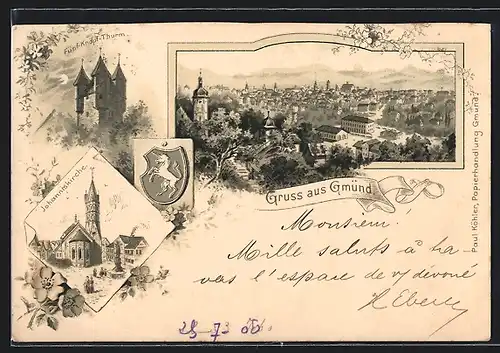 Fünf-Knöpf-Thurm.
Johanniskirche.
Gruss aus Gmünd
Paul Köhler, Papierhandlung Gmünd.
Monsieur!
Mille saluts à
vas l'espace de dévoué